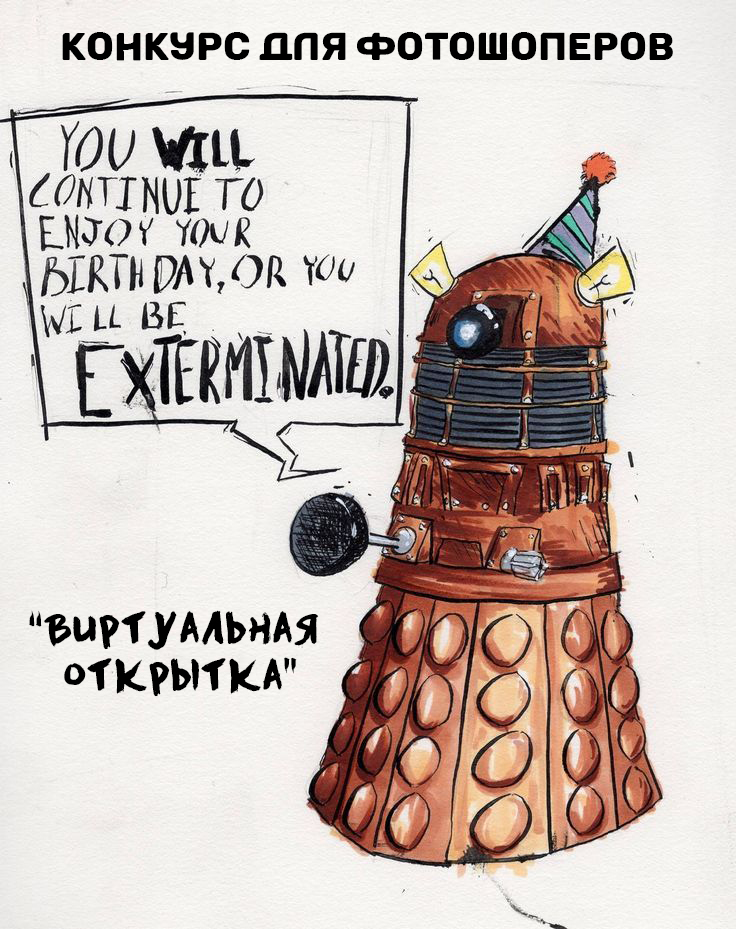 КОНКУРС ДЛЯ ФОТОШОПЕРОВ
YOU WILL
CONTINUE TO
ENJOY YOUR
BIRTHDAY, OR YOU
WILL BE
EXTERMINATED.
"ВИРТУАЛЬНАЯ
ОТКРЫТКА"